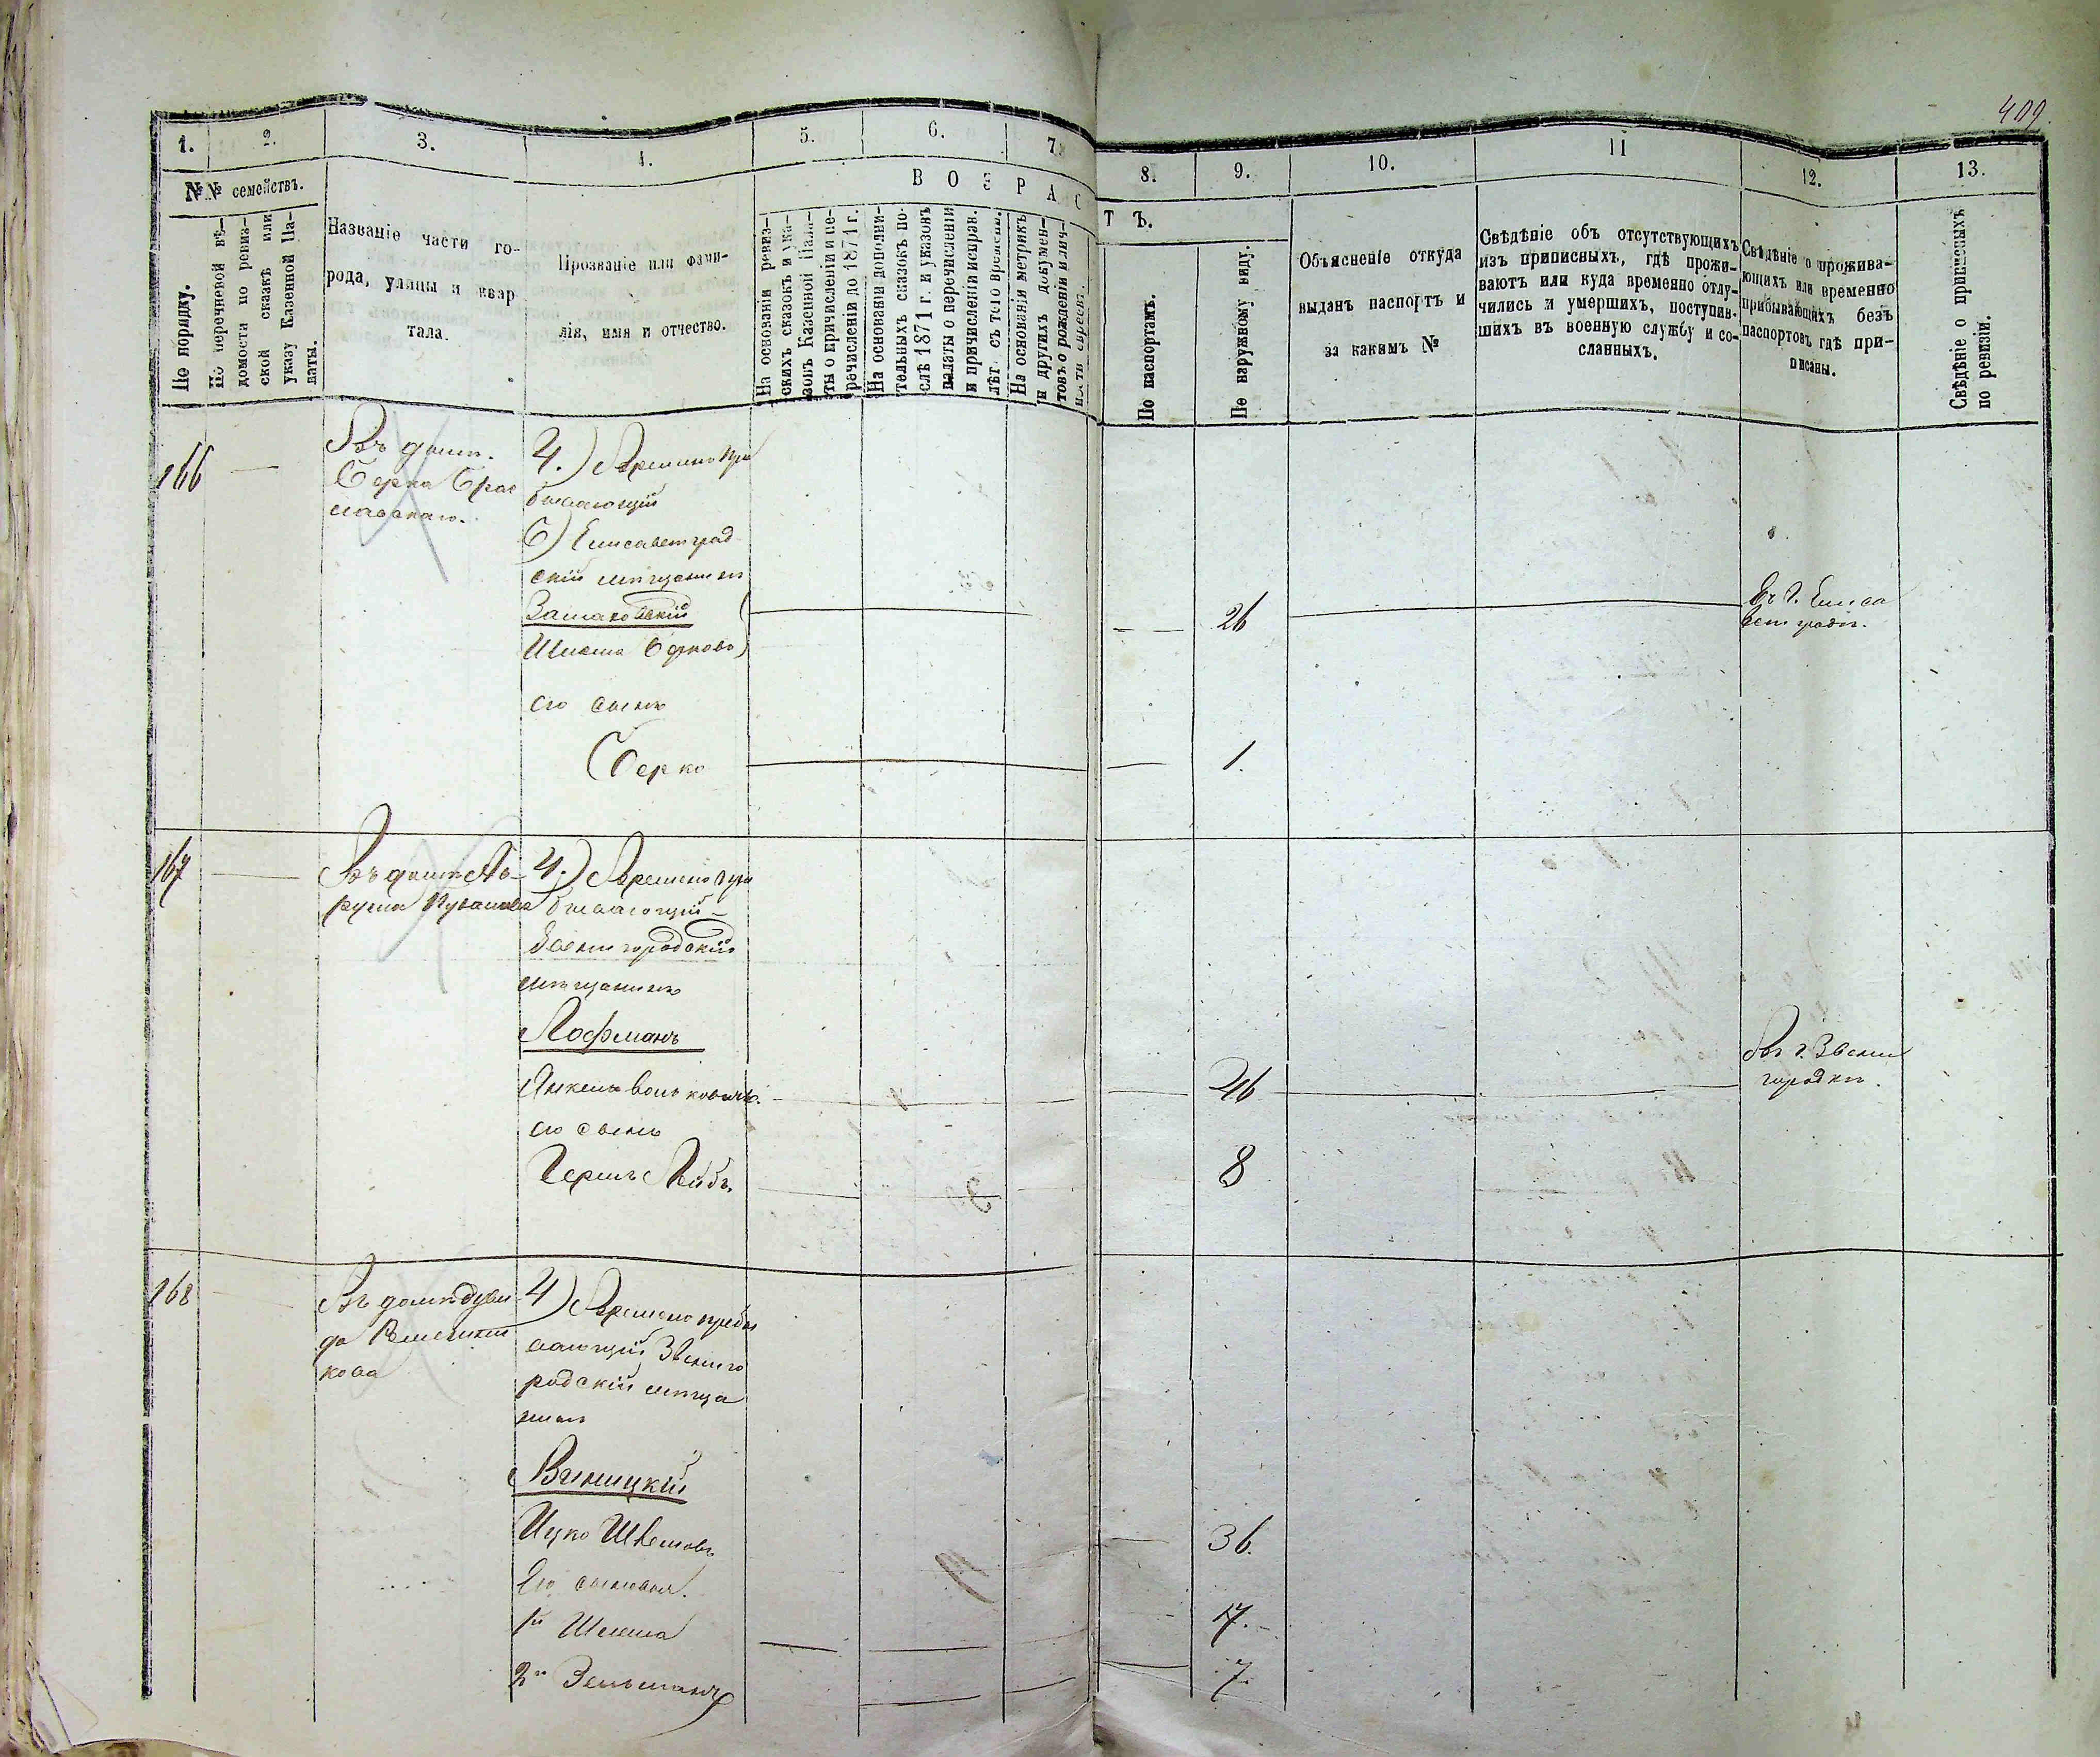 409.
1.
2.
3.
4.
5.
6.
7.
8.
9.
10.
11
12.
13.
№№ семействъ.
По порядку.
По перечневой вѣ-
домости по ревиз-
ской сказкѣ или
указу Казенной Па-
латы.
Названіе части го-
рода, улицы и квар
тала.
Прозваніе или фами-
лія, имя и отчество.
ВОЗРАС
Т Ъ.
На основаніи ревиз-
скихъ сказокъ и ука-
зовъ Казенной Пала-
ты о причисленіи и пе-
речисленіи до 1871 г.
На основаніи дополни-
тельныхъ сказокъ по-
слѣ 1871 г. и указовъ
палаты о перечисленіи
и причисленіи исправ.
лѣт. съ того времени.
На основаніи метрикъ
и другихъ докумен-
товъ о рожденіи и лич-
По паспортамъ.
По наружному виду.
Объясненіе откуда
выданъ паспортъ и
за какимъ №
Свѣдѣніе объ отсутствующихъ
изъ приписныхъ, гдѣ прожи-
ваютъ или куда временно отлу-
чились и умершихъ, поступив-
шихъ въ военную службу и со-
сланныхъ.
Свѣдѣніе о прожива-
ющихъ или временно
прибывающихъ безъ
паспортовъ гдѣ при-
писаны.
Свѣдѣніе о приписныхъ
по ревизіи.
166
Въ домѣ
Берка Брас
лавскаго.
4.) Времено при
бывающій
Б) Елисаветград
скій мѣщанинъ
Шлема Берковъ
26
Въ г. Елиса
ветградѣ.
его сынъ
Берко
1.
167
Въ домѣ
4.) Времено при
бывающій
Звенигородскій
мѣщанинъ
Лофманъ
Янкель Вольковичъ.
46
Въ г. Звени
городкѣ.
его сынъ
Гершъ Лейбъ
8
168
Въ домѣ Дуви
да
кова
4) Времено прибы
вающій Звениго
родскій мѣща
нинъ
Виницкій
Ицко Шлемовъ
36.
Его сыновья.
1й Шлема
17.
2й Зельманъ
7